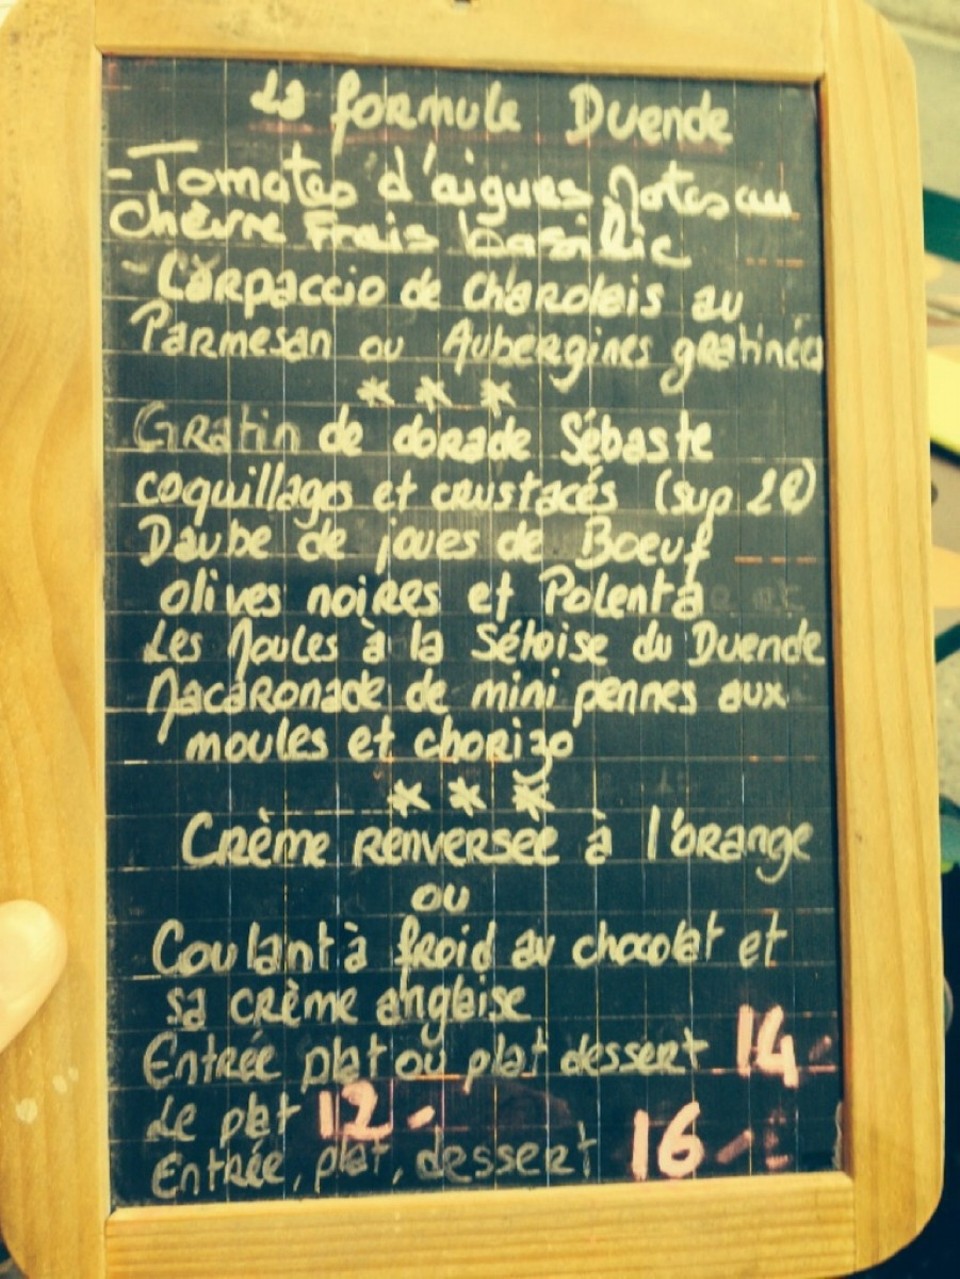 La formule Duende
- Tomates d'aigues Mortes au
Chèvre Frais basilic
- Carpaccio de Charolais au
Parmesan ou Aubergines gratinées
* * *
Gratin de dorade Sébaste
coquillages et crustacés (sup 2€)
Daube de joues de Boeuf
olives noires et Polenta
Les Moules à la Sétoise du Duende
Macaronade de mini pennes aux
moules et chorizo
* * *
Crème renversée à l'orange
ou
Coulant à froid au chocolat et
sa crème anglaise
Entrée plat ou plat dessert 14 -
Le plat 12 -
Entrée, plat, dessert 16 -